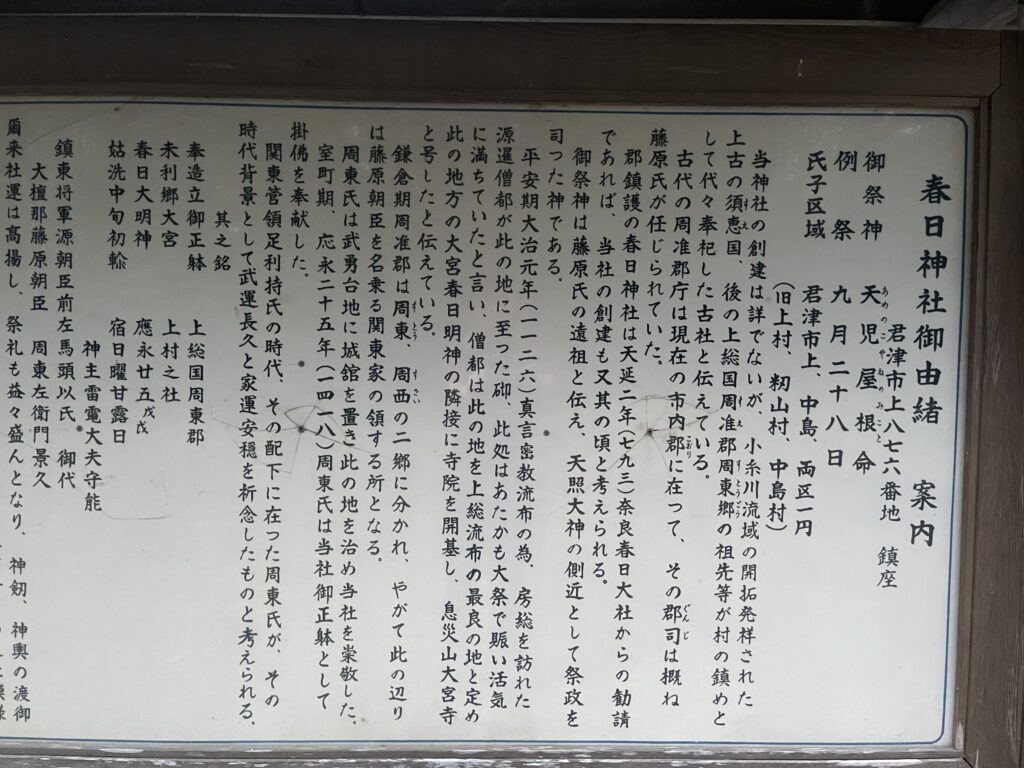 春日神社御由緒 案内
君津市上八七六番地 鎮座
御祭神 天児屋根命
あめのこやねのみこと
例祭 九月二十八日
氏子区域 君津市上、中島、両区一円
(旧上村、籾山村、中島村)
当神社の創建は詳でないが、小糸川流域の開拓発祥された
上古の須恵国、後の上総国周准郡周東郷の祖先等が村の鎮めと
して代々奉祀した古社と伝えている。
古代の周准郡庁は現在の市内郡に在って、その郡司は概ね
藤原氏が任じられていた。
郡鎮護の春日神社は天延二年(七九三)奈良春日大社からの勧請
であれば、当社の創建も又其の頃と考えられる。
御祭神は藤原氏の遠祖と伝え、天照大神の側近として祭政を
司った神である。
平安期大治元年(一一二六)真言密教流布の為、房総を訪れた
源暹僧都が此の地に至った砌、此処はあたかも大祭で賑い活気
に満ちていたと言い、僧都は此の地を上総流布の最良の地と定め
此の地方の大宮春日明神の隣接に寺院を開基し、息災山大宮寺
と号したと伝えている。
鎌倉期周准郡は周東、周西の二郷に分かれ、やがて此の辺り
は藤原朝臣を名乗る関東家の領する所となる。
周東氏は武勇台地に城舘を置き此の地を治め当社を崇敬した。
室町期、応永二十五年(一四一八)周東氏は当社御正躰として
掛佛を奉献した。
関東管領足利持氏の時代、その配下に在った周東氏が、その
時代背景として武運長久と家運安穏を祈念したものと考えられる。
其之銘
奉造立御正躰 上総国周東郡
未利郷大宮 上村之社
春日大明神 應永廿五戊戌
姑洗中旬初 宿日曜甘露日
神主雷電大夫守能
鎮東将軍源朝臣前左馬頭以氏 御代
大檀那藤原朝臣 周東左衛門景久
爾来社運は高揚し、祭礼も益々盛んとなり、神剱、神輿の渡御